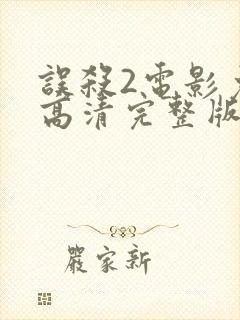 誤殺2電影
高清完整版
嚴家新